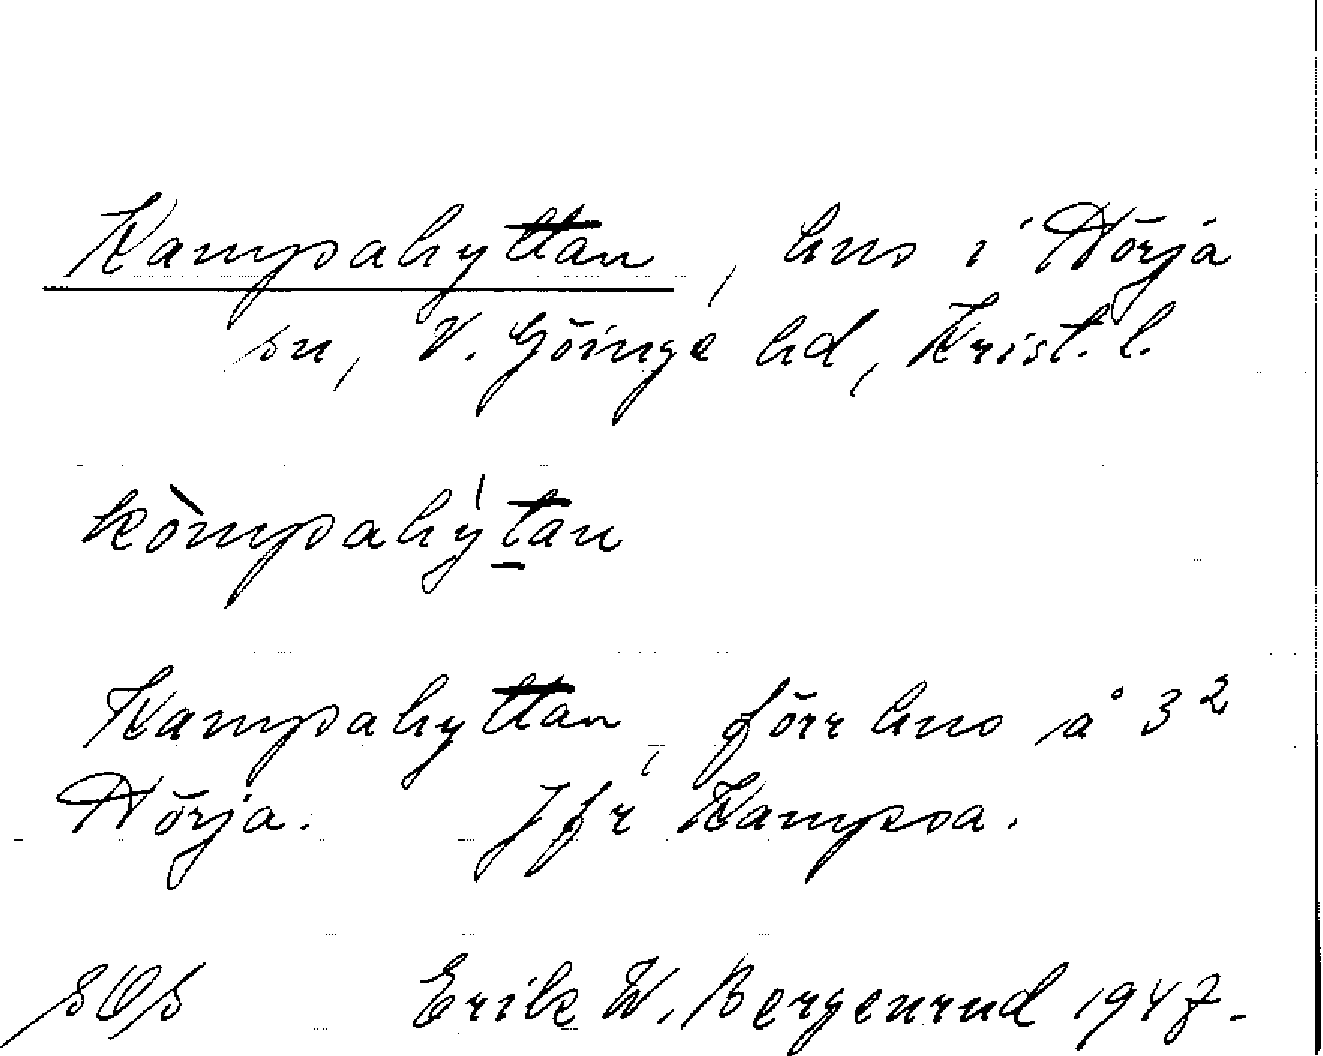 Kampahyttan, hus i Nörja
sn, V. Göinge hd, Krist. l.
kòmpahýtan
Kampahyttan, förr hus å 3²
Nörja. Jfr Kampaa.
SOS Erik W. Bergenrud 1947.